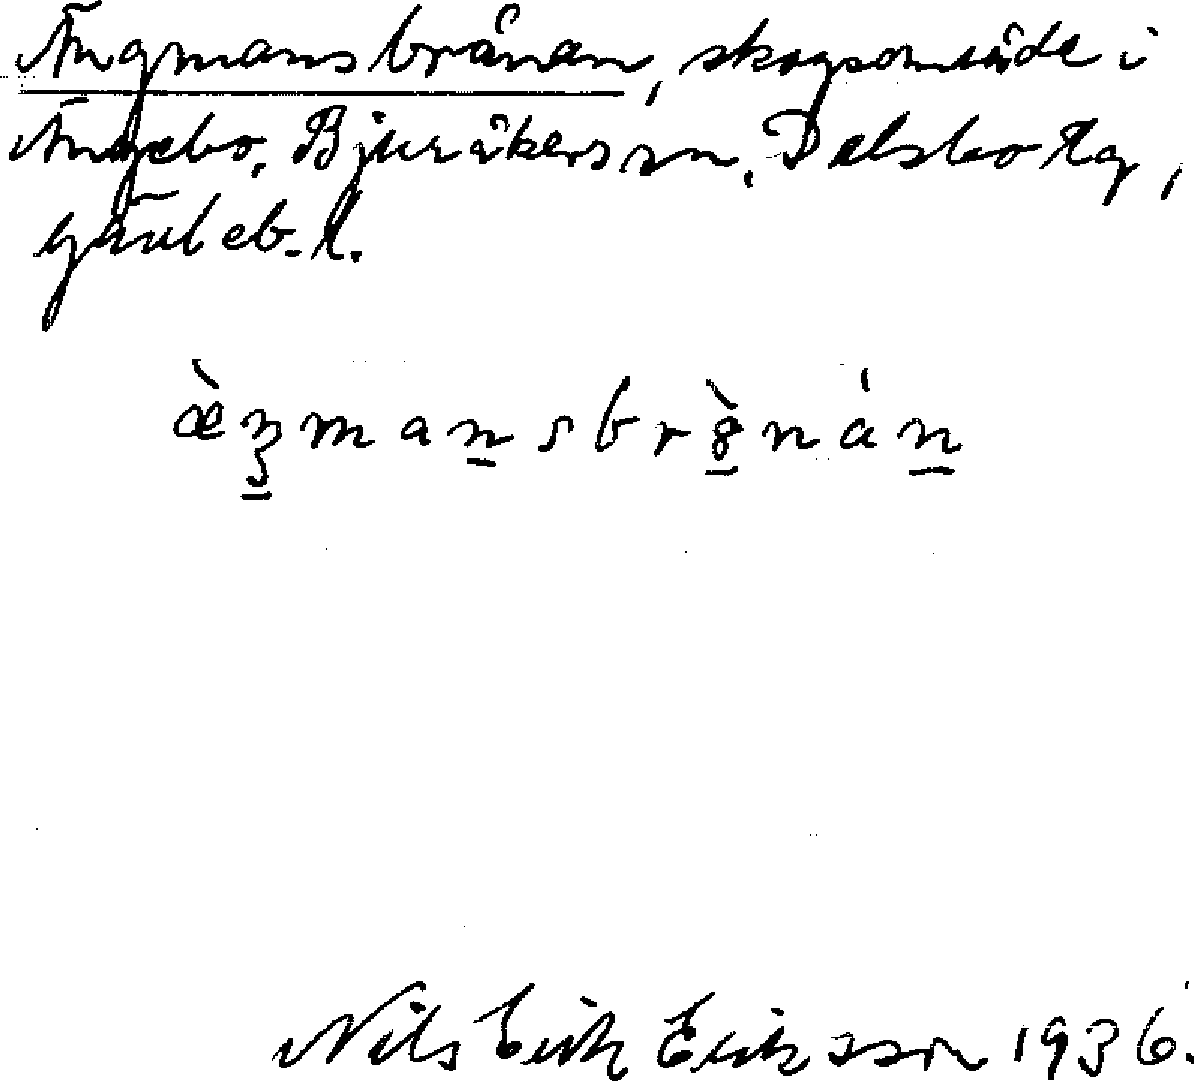 Ängmansbrånan, skogsområde i
Ängebo, Bjuråkers sn, Delsbo tg,
gävleb. l.
æ̀n̠man̠sbrò̠nán̠
Nils Erik Eriksson 1936.